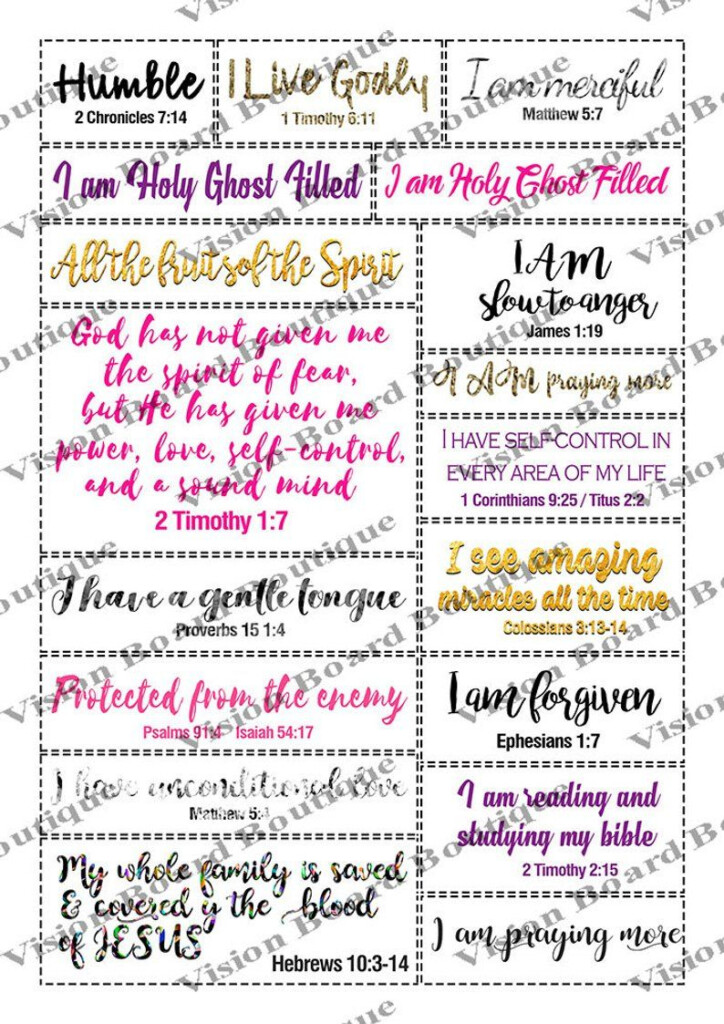 Humble
2 Chronicles 7:14
I Live Godly
1 Timothy 6:11
I am merciful
Matthew 5:7
I am Holy Ghost Filled
I am Holy Ghost Filled
All the fruits of the Spirit
I AM
slow to anger
James 1:19
God has not given me
the spirit of fear,
but He has given me
power, love, self-control,
and a sound mind
2 Timothy 1:7
I AM praying more
I HAVE SELF-CONTROL IN
EVERY AREA OF MY LIFE
1 Corinthians 9:25 / Titus 2:2
I see amazing
miracles all the time
Colossians 3:13-14
I have a gentle tongue
Proverbs 15 1:4
Protected from the enemy
Psalms 91:4 Isaiah 54:17
I am forgiven
Ephesians 1:7
I have unconditional love
Matthew 5:4
I am reading and
studying my bible
2 Timothy 2:15
My whole family is saved
& covered y the blood
of JESUS
Hebrews 10:3-14
I am praying more
Vision Board Boutique